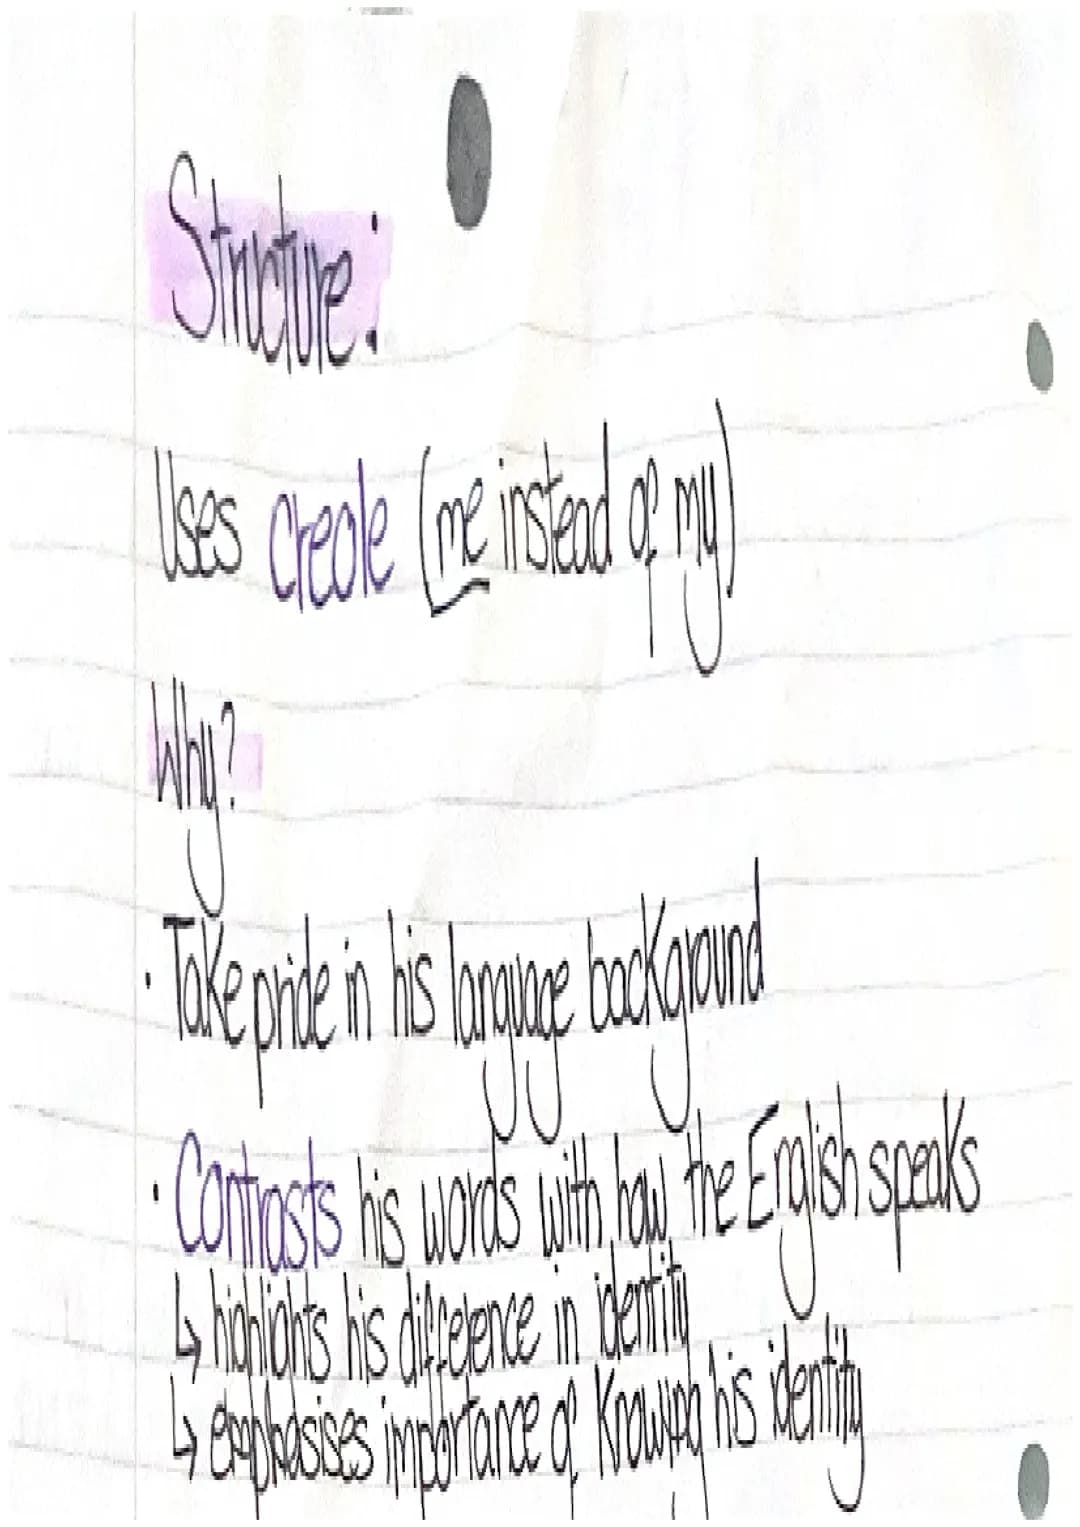 Structure:
Uses creole (me instead of my)
Why?
· Take pride in his language background
· Contrasts his words with how the English speaks
↳ highlights his difference in identity
↳ emphasises importance of knowing his identity